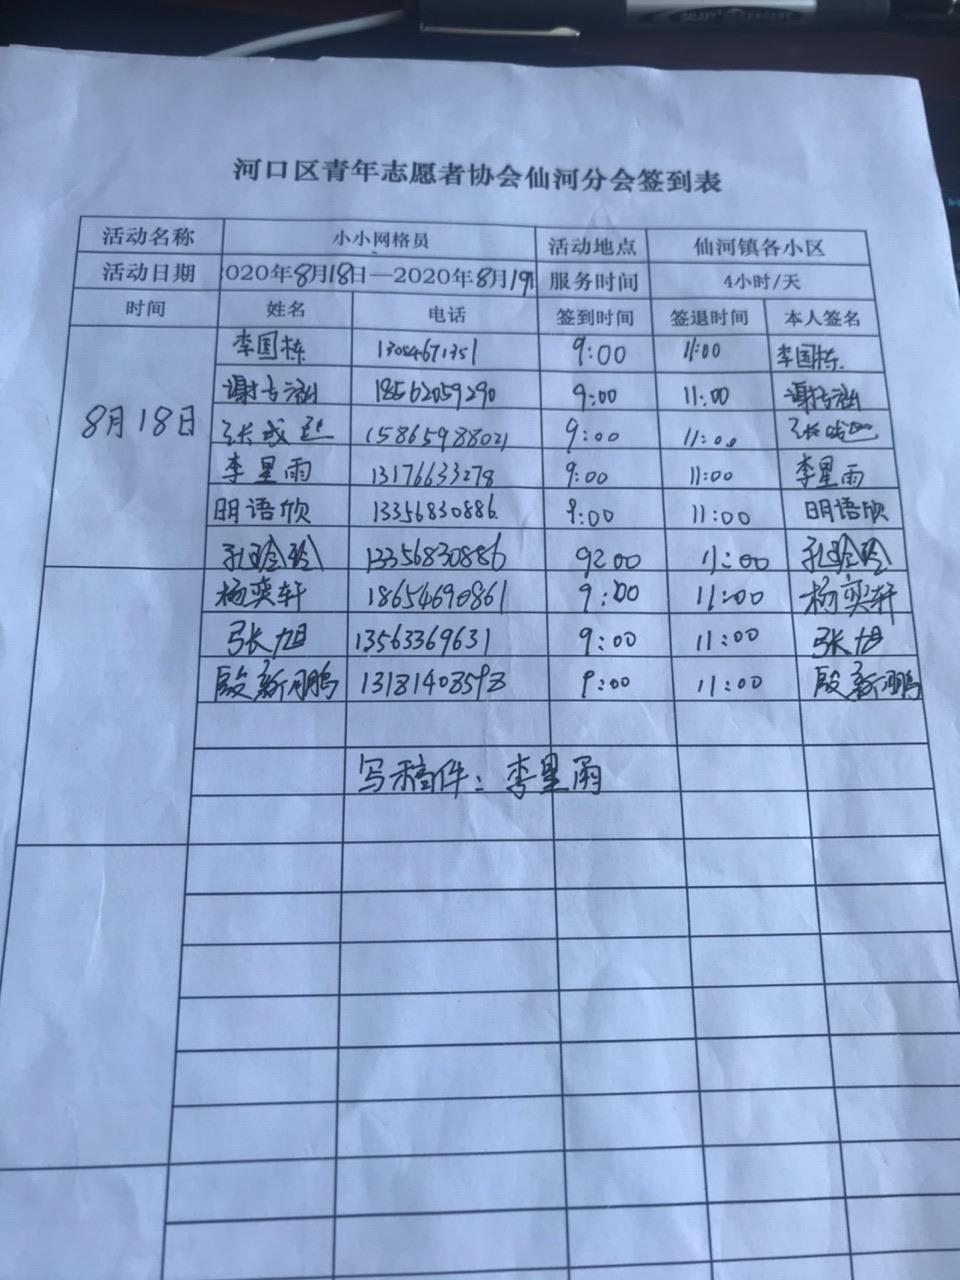 河口区青年志愿者协会仙河分会签到表
活动名称 小小网格员 活动地点 仙河镇各小区
活动日期 020年8月18日—2020年8月19 服务时间 4小时/天
时间 姓名 电话 签到时间 签退时间 本人签名
李国栋 13054671351 9:00 11:00 李国栋
18562059290 9:00 11:00
8月18日 15865988021 9:00 11:00
李星雨 13176633278 9:00 11:00 李星雨
明语欣 13356830886. 9:00 11:00 明语欣
孔玲玲 13356830886 9:00 11:00 孔玲玲
杨奕轩 18654690861 9:00 11:00 杨奕轩
张旭 13563369631 9:00 11:00 张旭
殷新鹏 13181403598 9:00 11:00 殷新鹏
写稿件：李星雨